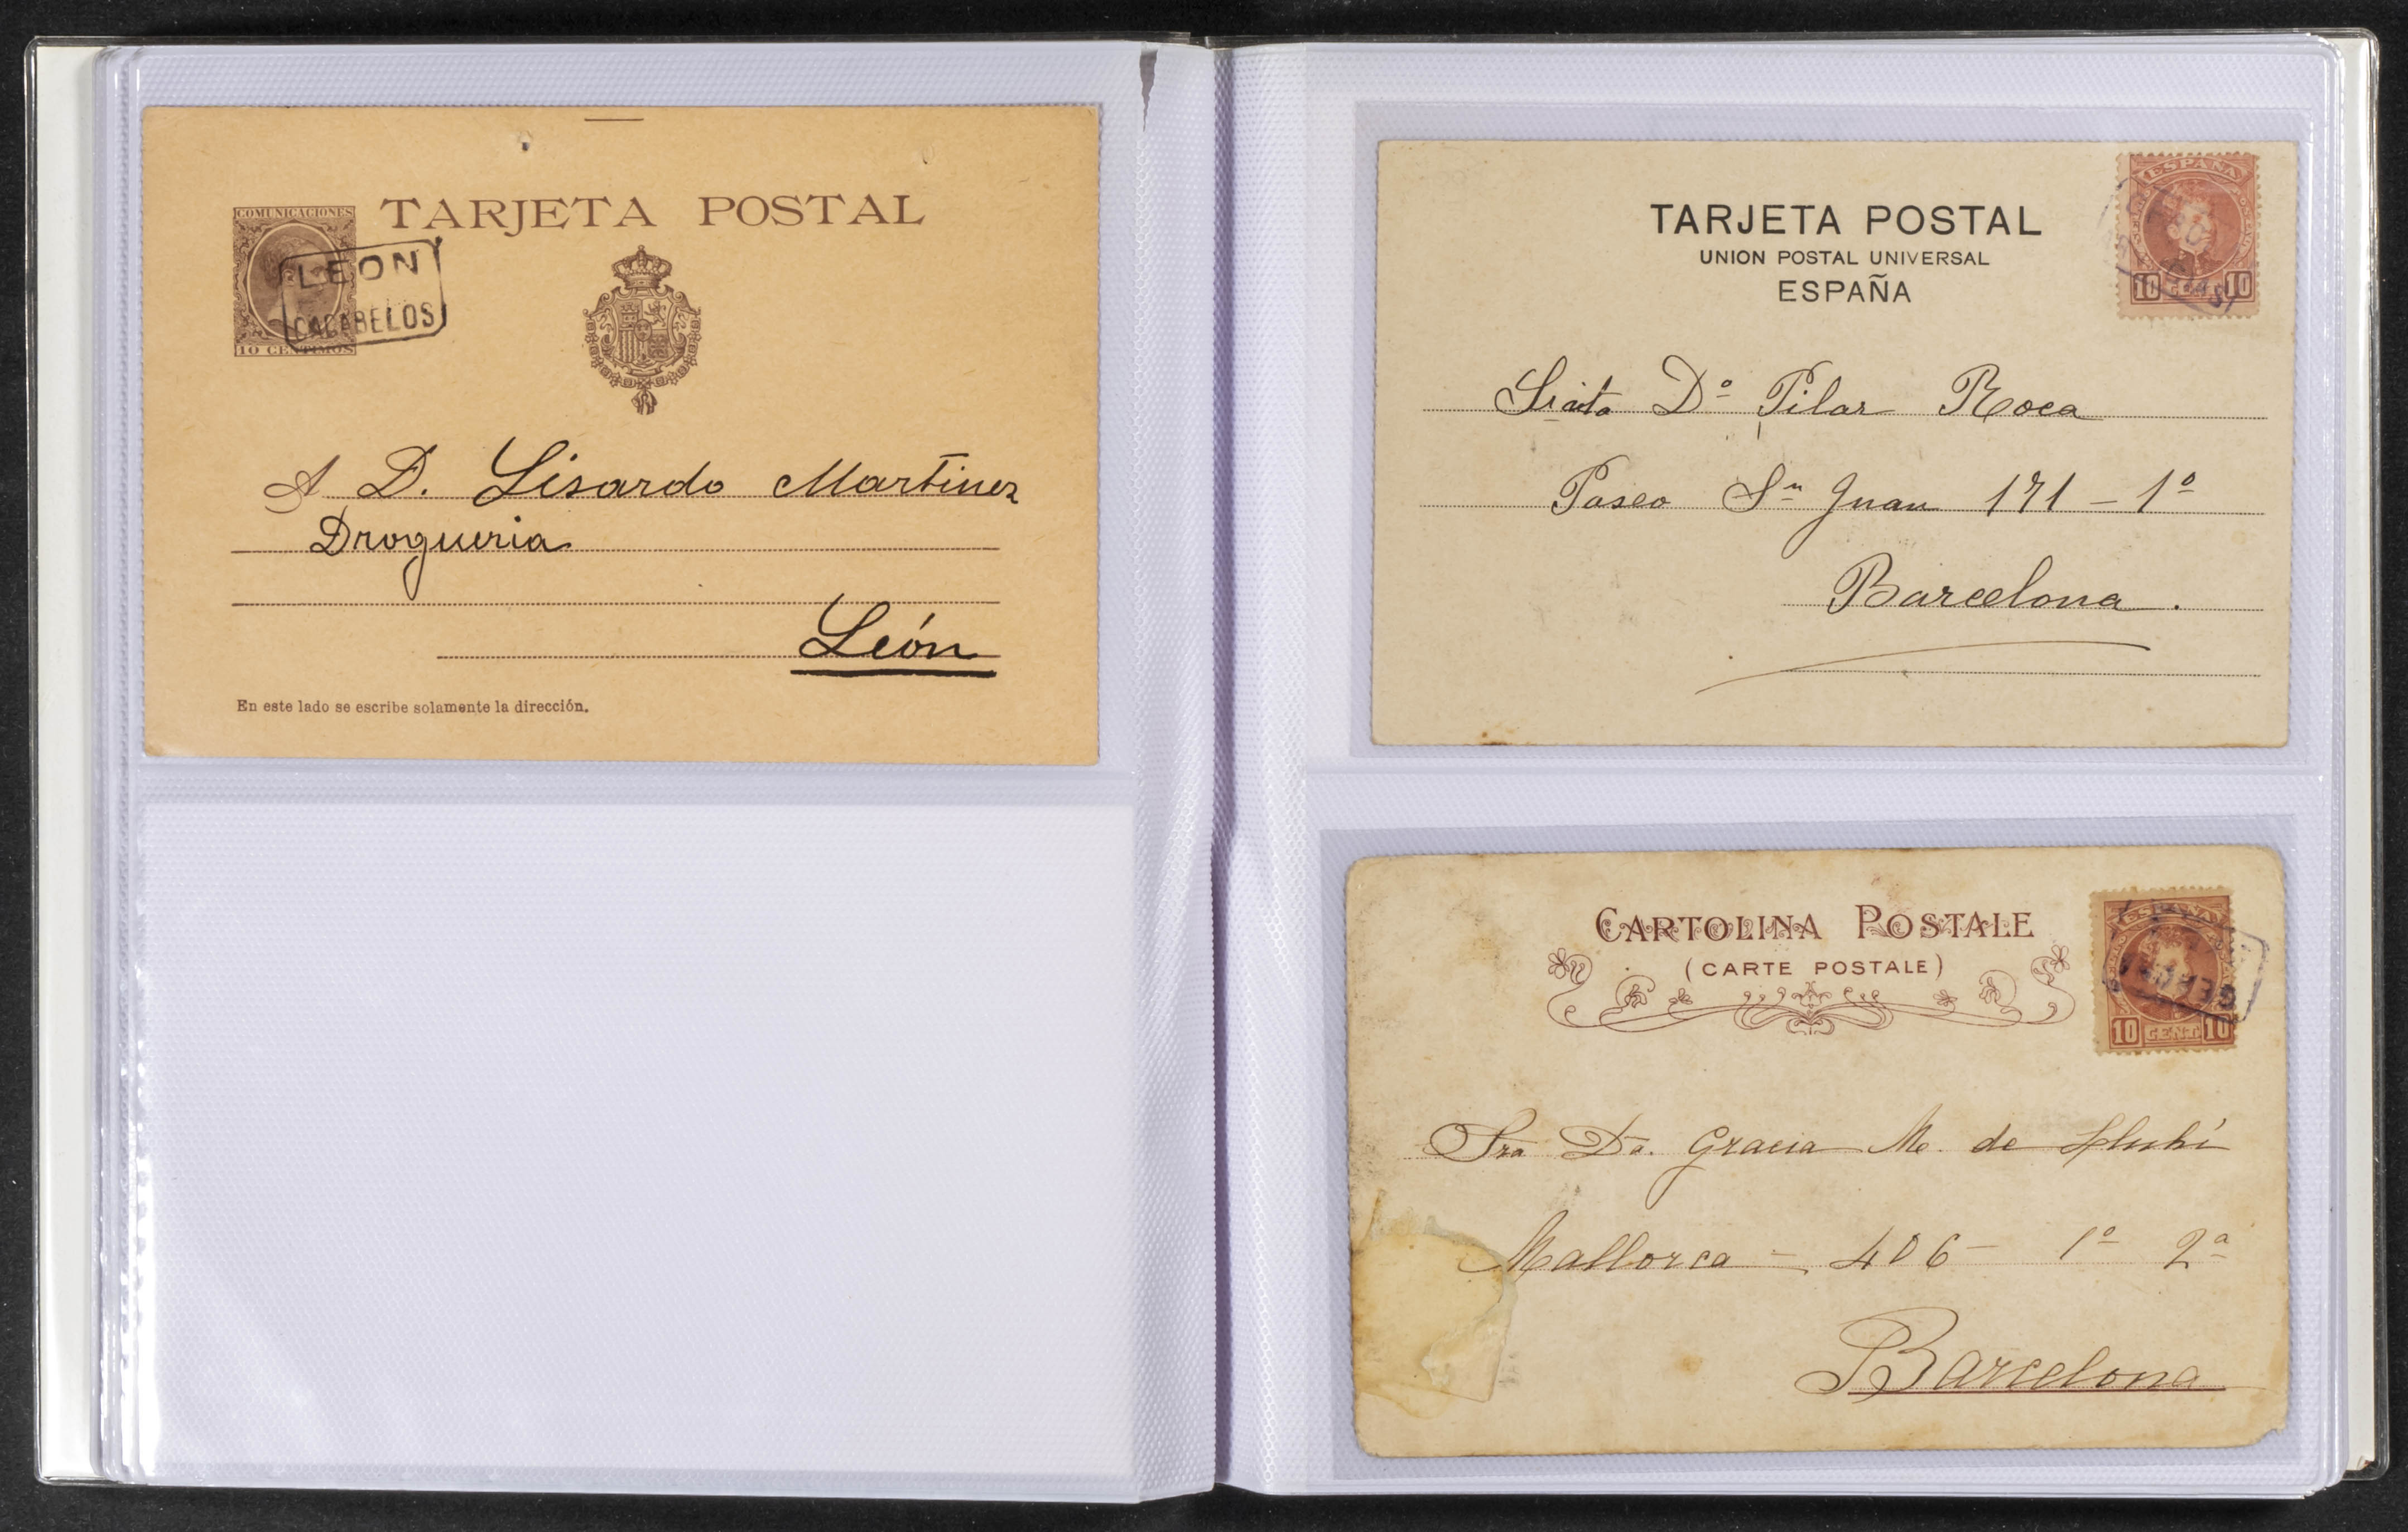 COMUNICACIONES
TARJETA POSTAL
LEON
CACABELOS
10 CENTIMOS
A D. Lisardo Martinez
Drogueria
León
En este lado se escribe solamente la dirección.
TARJETA POSTAL
UNION POSTAL UNIVERSAL
ESPAÑA
ESPAÑA
10 CENT 10
Srita Dª Pilar Roca
Paseo Sn Juan 171 - 1º
Barcelona.
CARTOLINA POSTALE
(CARTE POSTALE)
ESPAÑA
10 CENT. 10
Sra Da. Gracia M. de
Mallorca - 406 - 1º 2ª
Barcelona